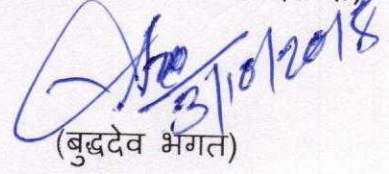 3/10/2018
(बुद्धदेव भगत)